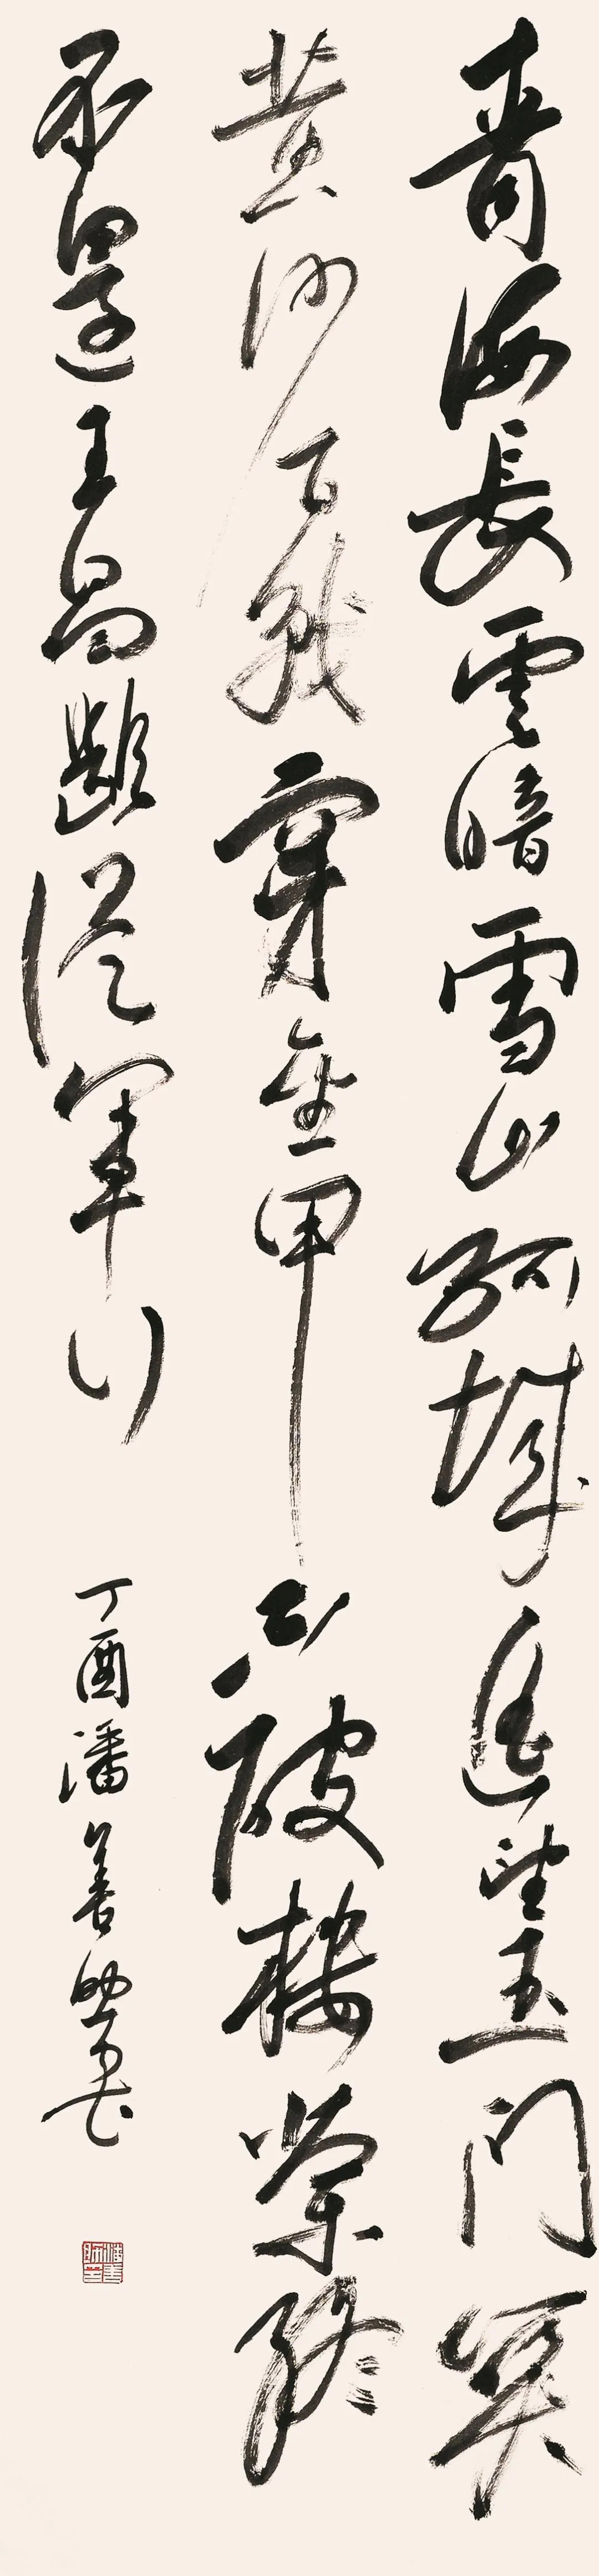 青海長雲暗雪山孤城遥望玉門關
黄沙百戰穿金甲不破樓蘭終
不還王昌齡從軍行
丁酉潘善助書